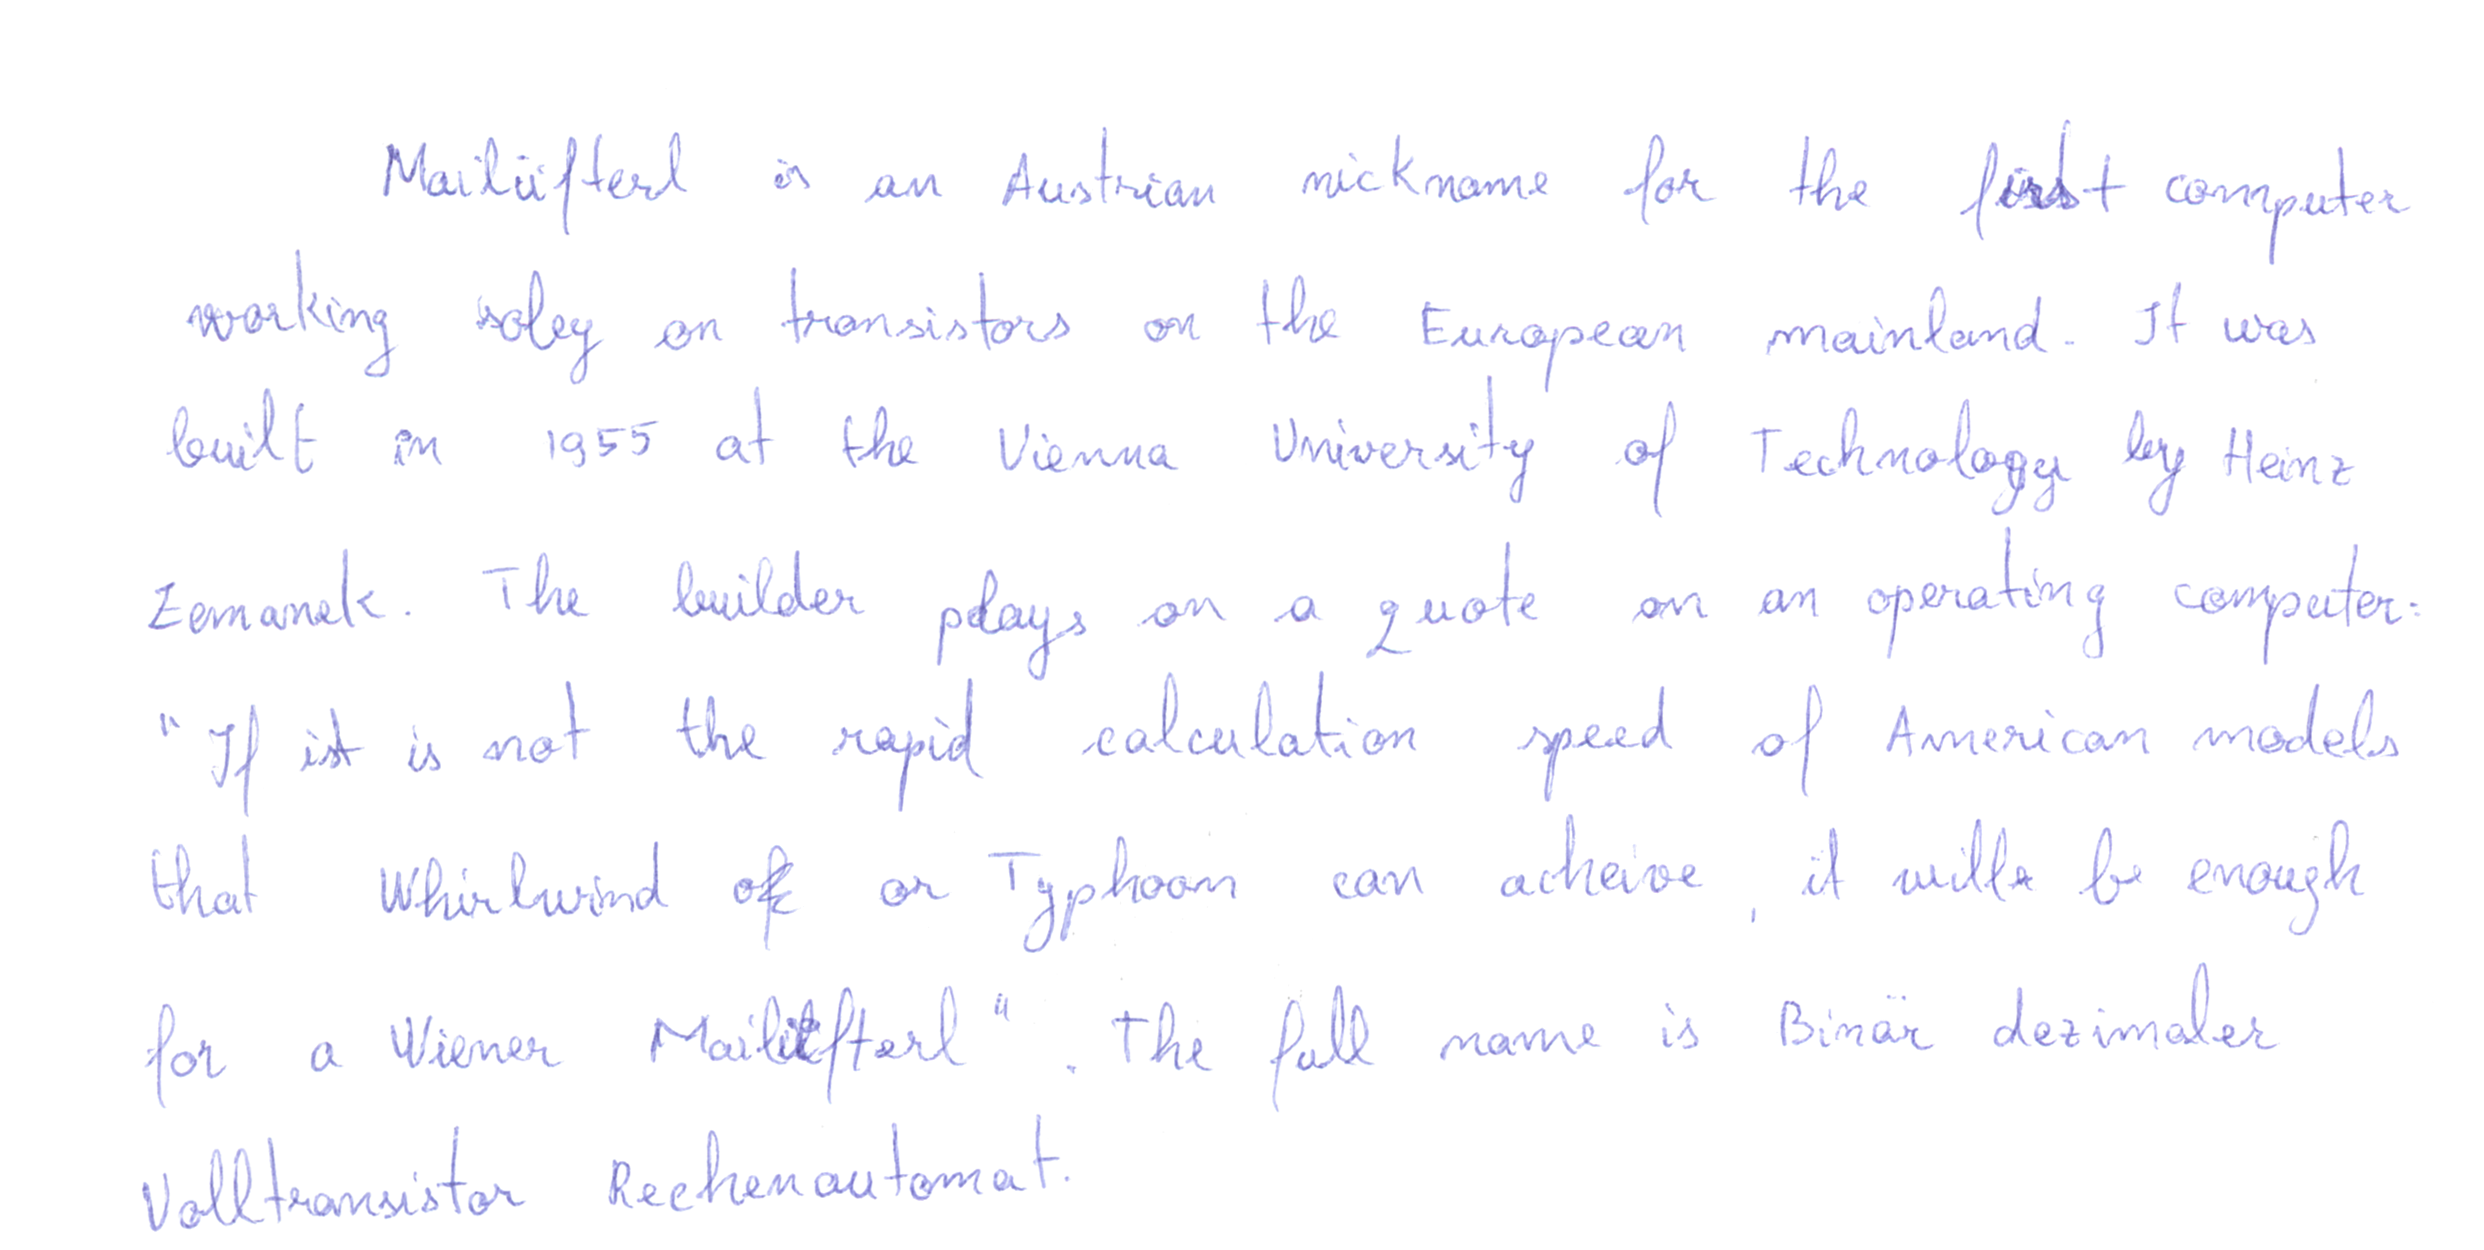 Mailüfterl is an Austrian nickname for the first computer
working soley on transistors on the European mainland. It was
built in 1955 at the Vienna University of Technology by Heinz
Zemanek. The builder plays on a quote on an operating computer:
"If it is not the rapid calculation speed of American models
that Whirlwind or Typhoon can acheive, it will be enough
for a Wiener Mailüfterl". The full name is Binär dezimaler
Volltransistor Rechenautomat.